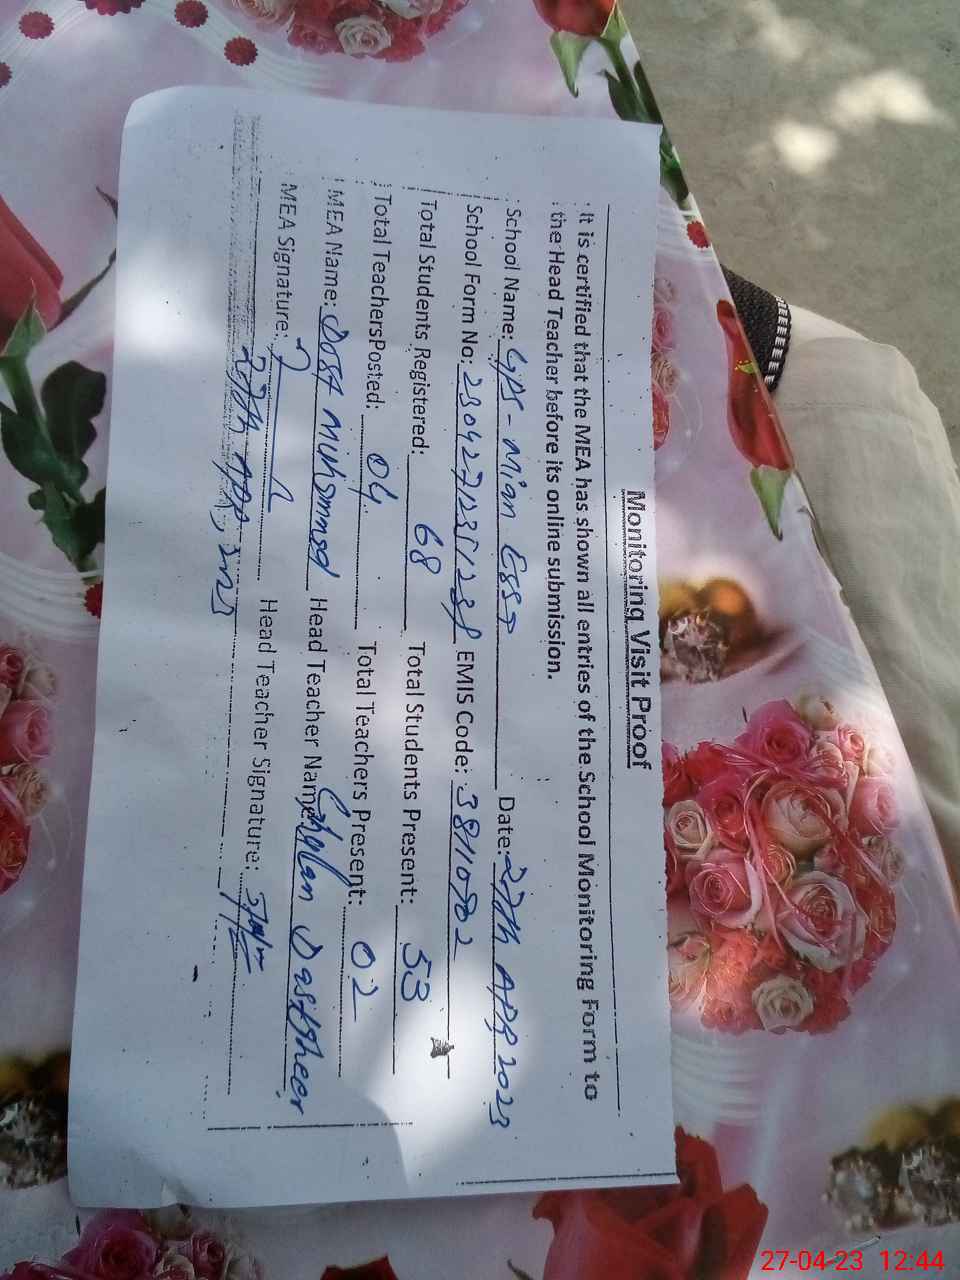 Monitoring Visit Proof
It is certified that the MEA has shown all entries of the School Monitoring Form to
the Head Teacher before its online submission.
School Name: GPS - Mian Essa Date: 27th APR 2023
School Form No: EMIS Code: 38110802
Total Students Registered: 68 Total Students Present: 53
Total TeachersPosted: 04 Total Teachers Present: 02
MEA Name: Dost Muhammad Head Teacher Name: Dasthger
MEA Signature: Head Teacher Signature:
27th APR, 2023
27-04-23 12:44